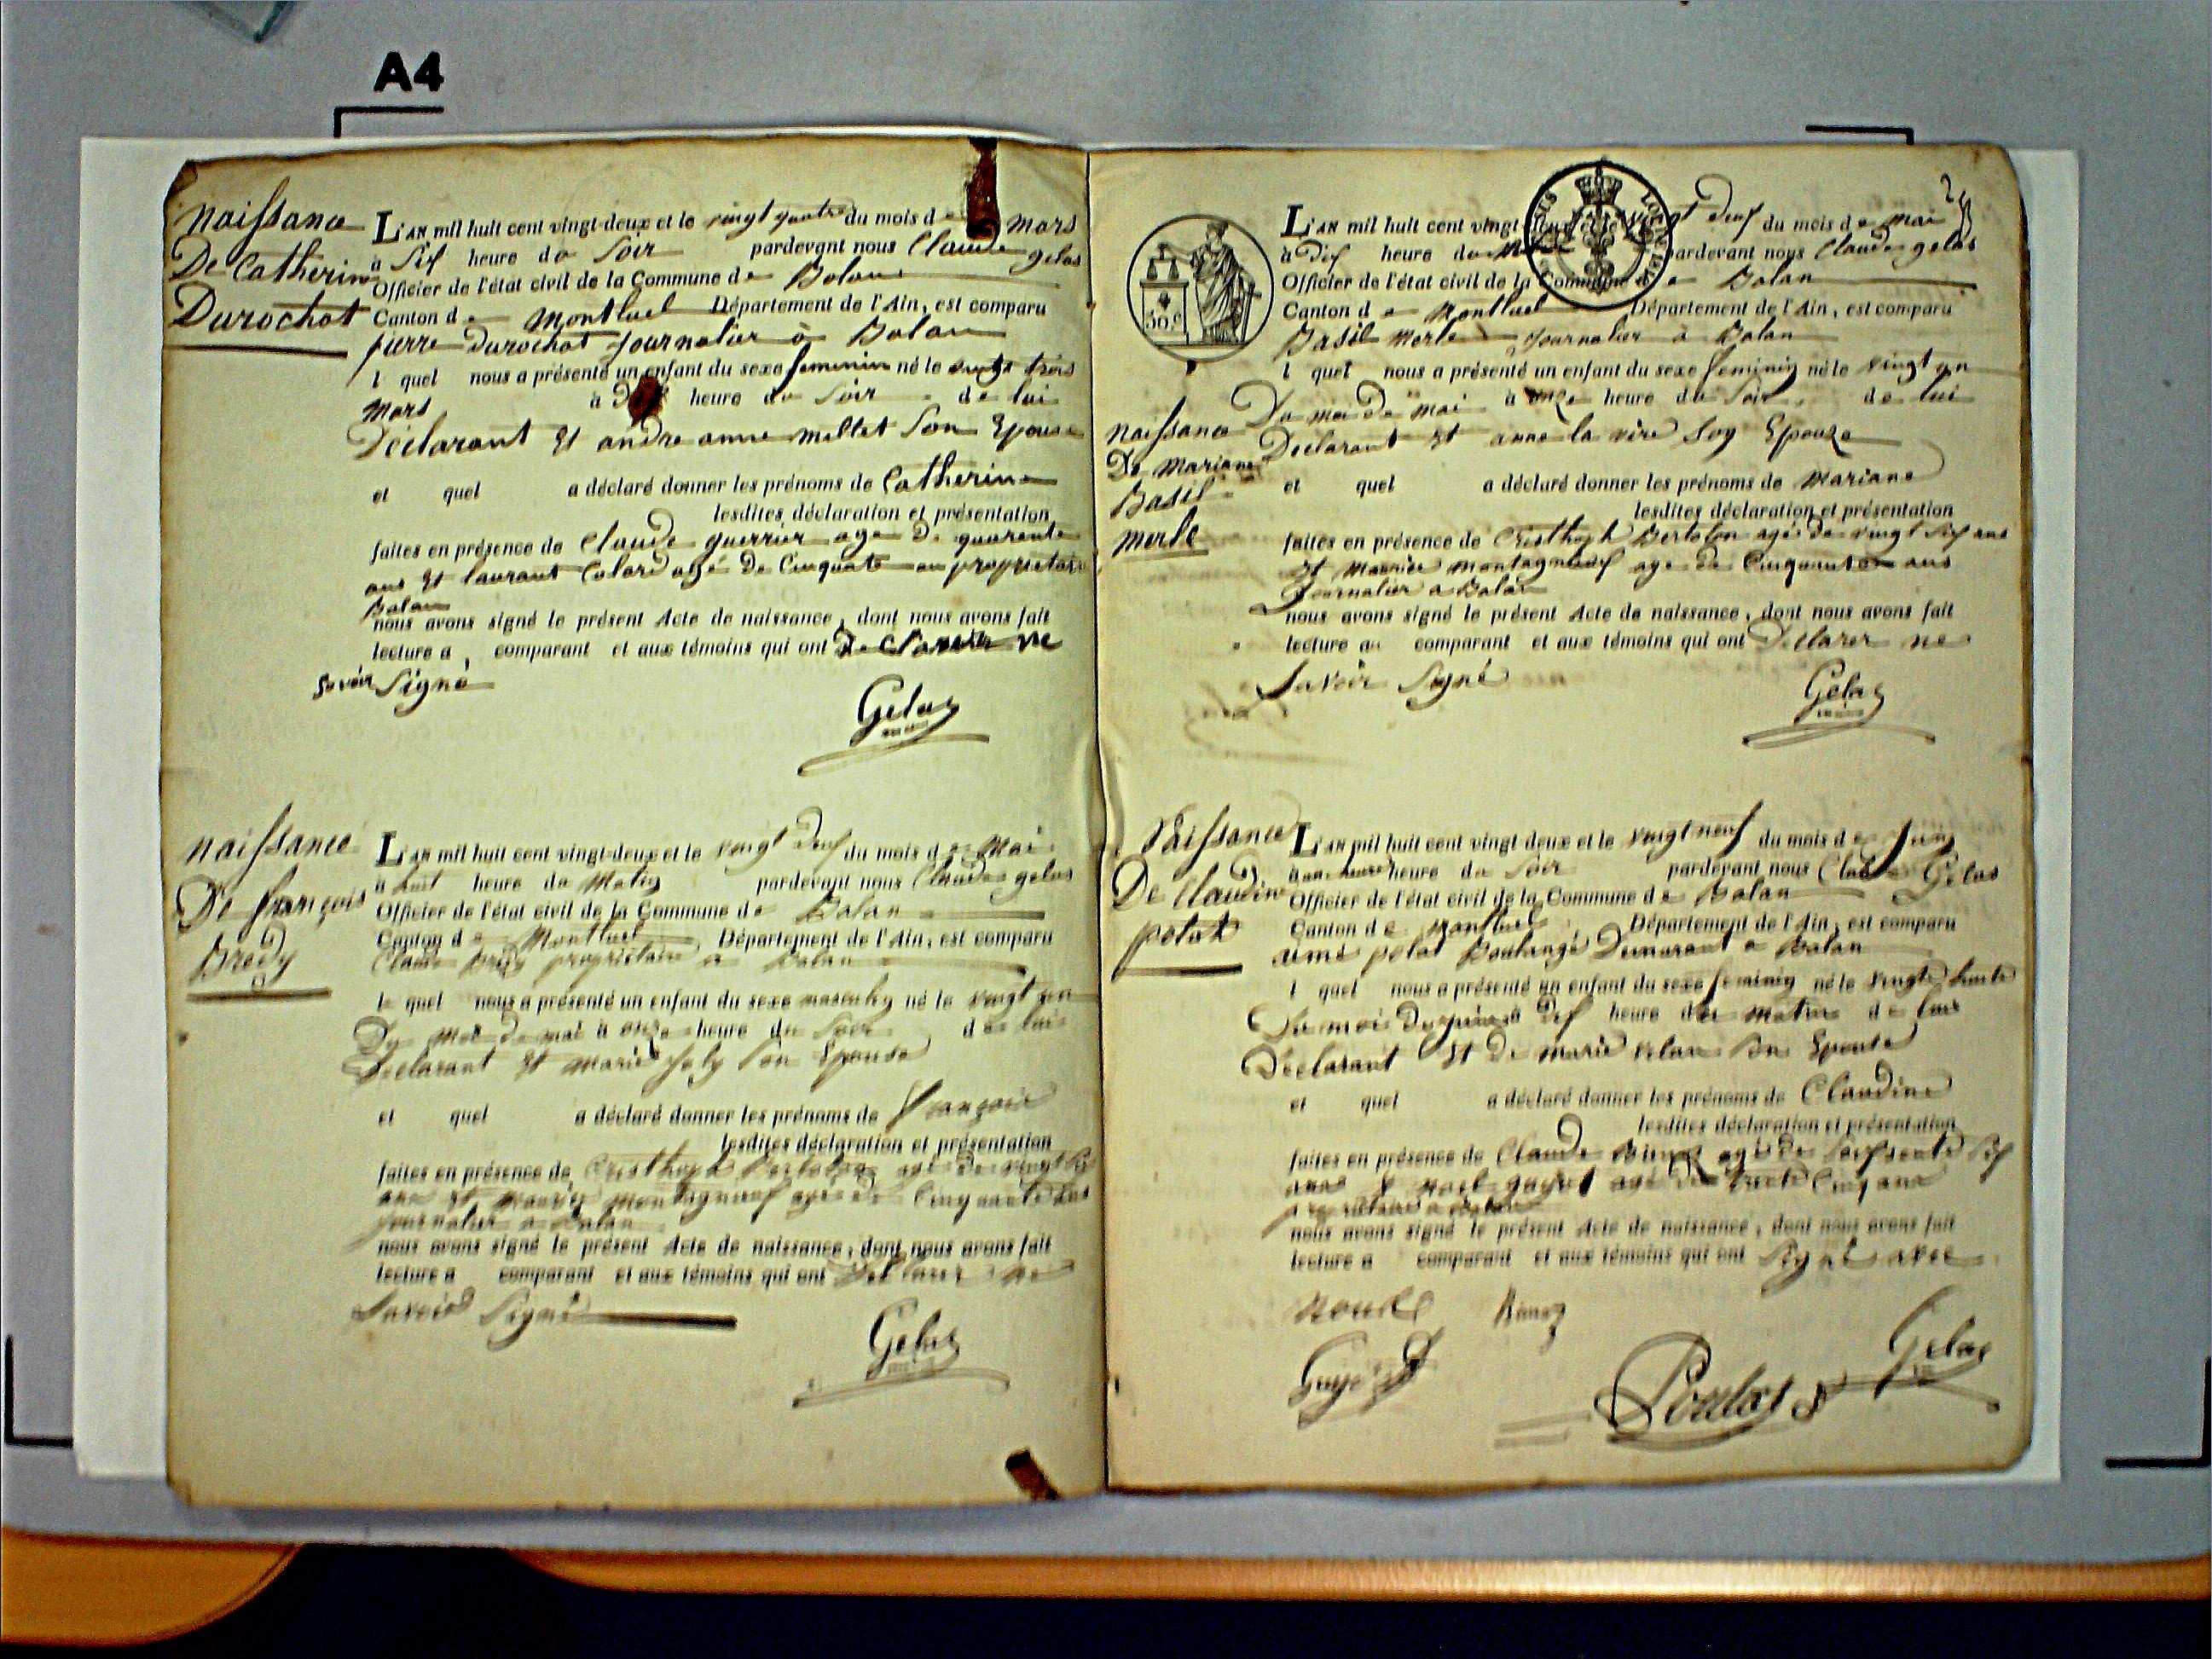 A4
naissance
De Catherine
Durochat
L'AN mil huit cent vingt-deux et le vingt quatre du mois de mars
à six heure du Soir pardevant nous Claude gelas
Officier de l'état civil de la Commune de Balan
Canton de Montluel Département de l'Ain, est comparu
pierre Durochat journalier à Balan
l quel nous a présenté un enfant du sexe feminin né le vingt trois
Mars à heure du Soir de lui
Déclarant Et andre anne millet Son Epouse
et quel a déclaré donner les prénoms de Catherine
lesdites déclaration et présentation
faites en présence de Claude guerrier age De quarente
ans Et laurant Colard agé De Cinquate an propriétaire
Balan
nous avons signé le présent Acte de naissance, dont nous avons fait
lecture a comparant et aux témoins qui ont Declarer ne
Savoir Signé
Gelas
maire
naissance
De françois
Bredy
L'AN mil huit cent vingt-deux et le vingt Deux du mois de Mai
à huit heure du Matin pardevant nous Claude gelas
Officier de l'état civil de la Commune de Balan
Canton de Montluel Département de l'Ain, est comparu
Claude Bredy propriétaire a Balan
le quel nous a présenté un enfant du sexe masculin né le vingt un
Du Moi de mai à onze heure du Soir de lui
Declarant Et Marie Joly Son Epouse
et quel a déclaré donner les prénoms de françois
lesdites déclaration et présentation
faites en présence de Cristhoph Bertolon agé de vingt six
ans Et Maurice Montagneux agé de Cinquante ans
journalier a Balan
nous avons signé le présent Acte de naissance, dont nous avons fait
lecture a comparant et aux témoins qui ont Déclarer ne
Savoir Signé
Gelas
maire
30.c
LOI DE 1816
L'AN mil huit cent vingt deux et le vingt Deux du mois de mai
à Dix heure du pardevant nous Claude gelas
Officier de l'état civil de la Commune de Balan
Canton de Montluel Département de l'Ain, est comparu
Basil Merle journalier à Balan
l quel nous a présenté un enfant du sexe feminin né le vingt un
Du moi de mai à onze heure du Soir de lui
naissance
De Mariane
Basil
merle
Declarant Et anne la vire Son Epouze
et quel a déclaré donner les prénoms de Mariane
lesdites déclaration et présentation
faites en présence de Cristhoph Bertolon agé de vingt six ans
Et Maurice Montagneux age de Cinquante ans
Journalier a Balan
nous avons signé le présent Acte de naissance, dont nous avons fait
lecture au comparant et aux témoins qui ont Declarer ne
Savoir Signé
Gelas
maire
Naissance
De Claudine
polat
L'AN mil huit cent vingt deux et le vingt neuf du mois de Juin
à heure du Soir pardevant nous Claude Gelas
Officier de l'état civil de la Commune de Balan
Canton de Montluel Département de l'Ain, est comparu
aimé polat Boulangé Demurant a Balan
l quel nous a présenté un enfant du sexe feminin né le vingte huite
Du mois De juin à Dix heure du Matin de lui
Déclarant Et De Marie Son Epouse
et quel a déclaré donner les prénoms de Claudine
lesdites déclaration et présentation
faites en présence de Claude agé de soissente six
ans & noel guyot agé de trente Cinq ans
propriétaire a Balan
nous avons signé le présent Acte de naissance, dont nous avons fait
lecture a comparant et aux témoins qui ont Signé avec
nous
Guyot
Gelas